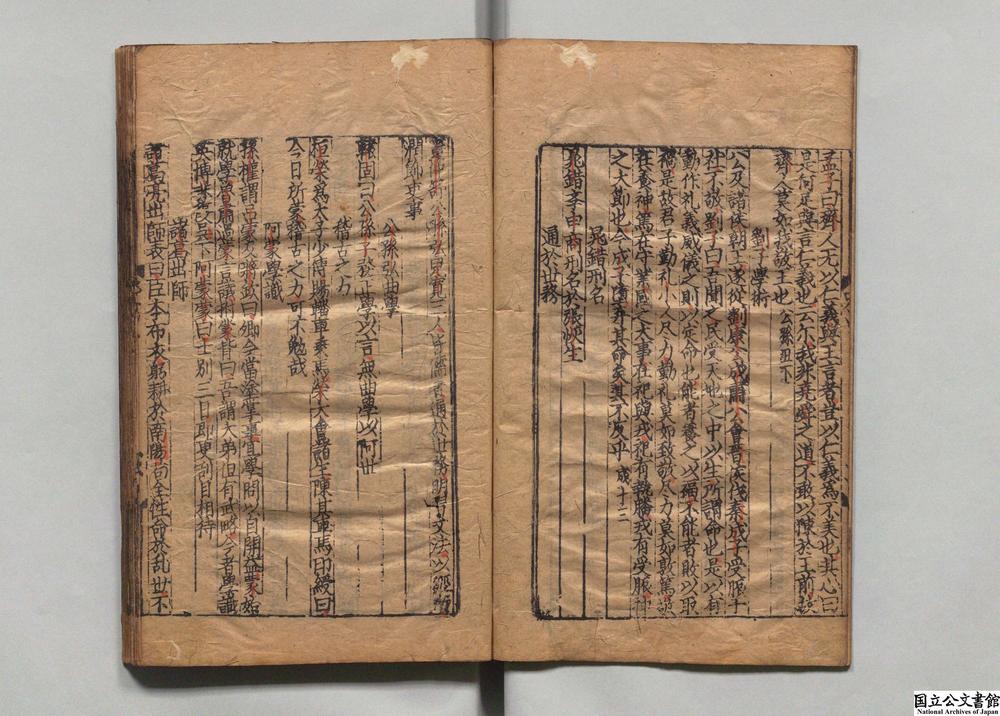 孟子曰齊人无以仁義與王言者豈以仁義為不美也其心曰
是何足與言仁義也云尔我非堯舜之道不敢以陳於王前故
齊人莫如我敬王也 公孫丑下
劉子學術
公及諸侯朝王遂從劉康公成肅公會晋侯伐秦成子受脤于
社不敬劉子曰吾聞之民受天地之中以生所謂命也是以有
動作礼義威儀之則以定命也能者養之以福不能者敗以取
禍是故君子勤礼小人尽力勤礼莫如致敬尽力莫如敦篤敬
在養神篤在守業國之大事在祀與戎祀有執膰戎有受脤神
之大節也今成子惰弃其命矣其不反乎 成十三
晁錯刑名
晁錯孝申商刑名於張恢生
通於世務
三人皆儒者通於世務明習文法以經
潤飾吏事
公孫弘曲學
轅固曰公孫子務正學以言無曲學以阿世
稽古之力
桓榮為太子少傅賜輜車乘馬榮大會諸生陳其車馬印綬曰
今日所蒙稽古之力可不勉哉
阿蒙學識
孫權謂呂蒙及蔣欽曰卿今當塗掌事宜學問以自開益蒙始
就學魯肅過蒙言議拊蒙背曰吾謂大弟但有武略今者學識
英博非復吳下阿蒙蒙曰士別三日即更刮目相待
諸葛出師
諸葛亮出師表曰臣本布衣躬耕於南陽苟全性命於乱世不
国立公文書館
National Archives of Japan